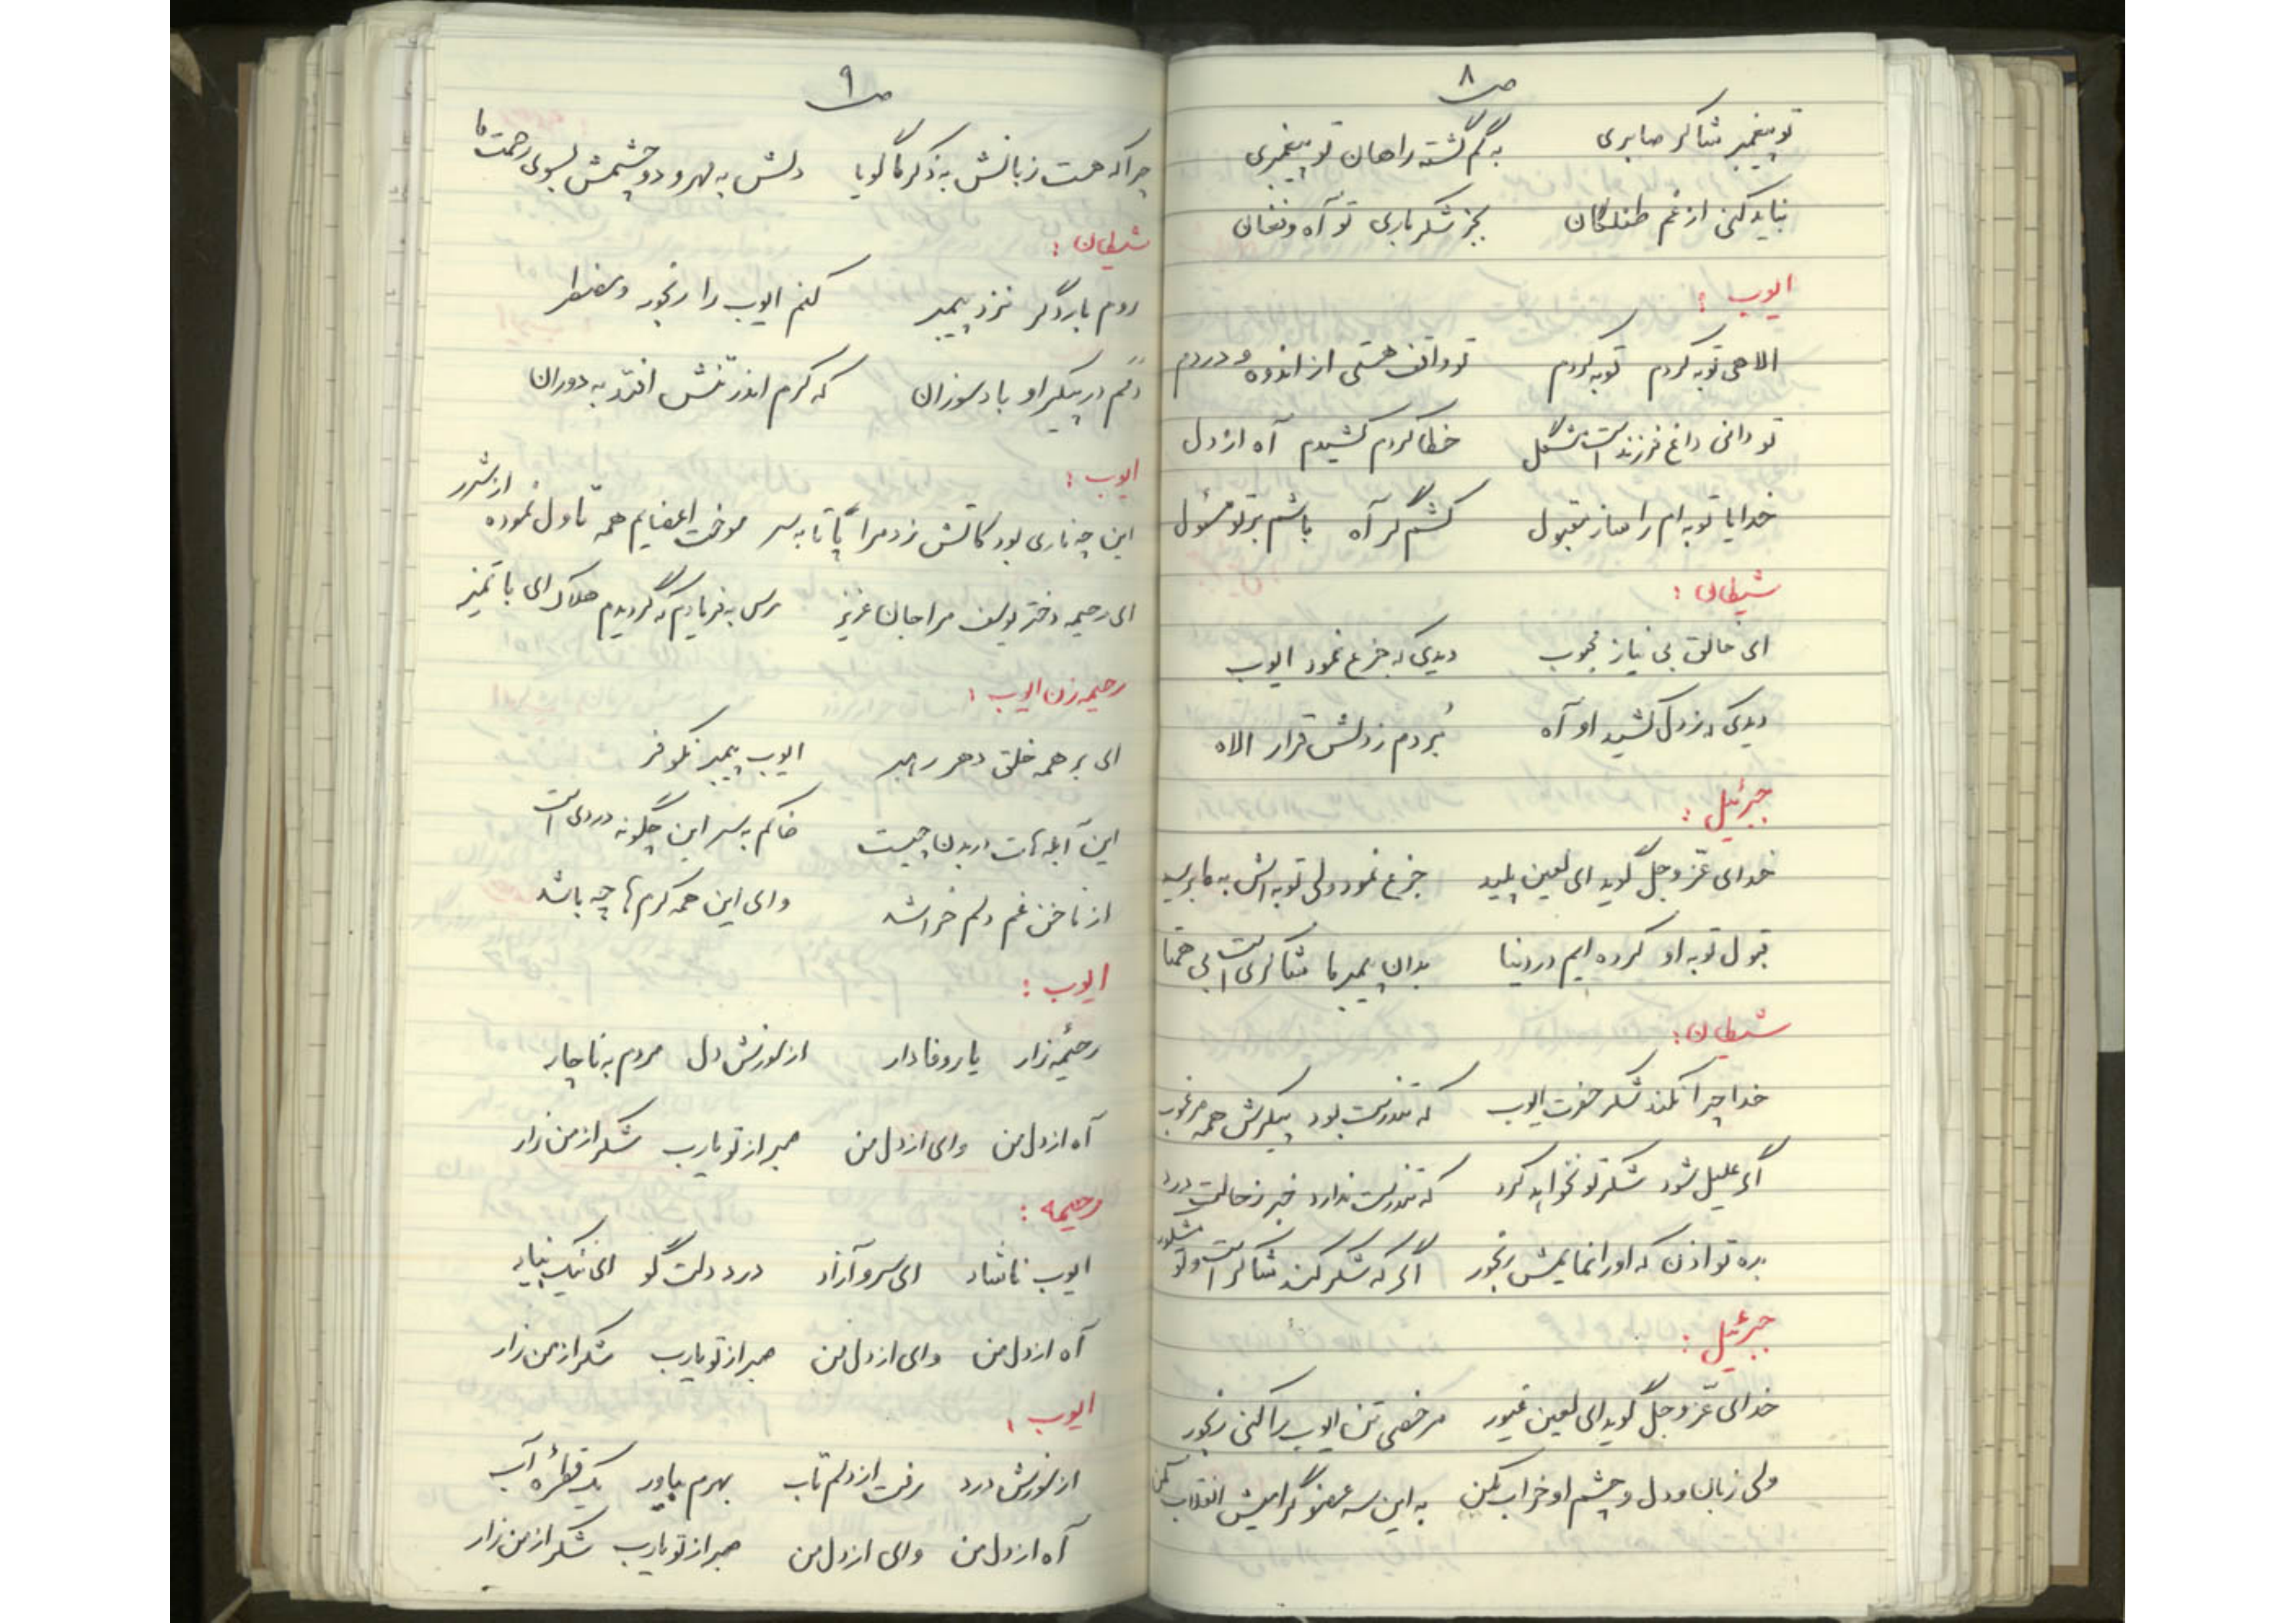 ص ۸
تو پیغمبر شاکر صابری به گم گشته راهان تو پیغمبری
نباید کنی از غم طفلکان بجز شکر باری تو آه و فغان
ایوب :
الاهی توبه کردم توبه کردم تو واقف هستی از اندوه و دردم
تو دانی داغ فرزند است مشگل خطا کردم کشیدم آه از دل
خدایا توبه ام را ساز مقبول کشم گر آه باشم بر تو مسئول
شیطان :
ای خالق بی نیاز محبوب دیدی که جزع نمود ایوب
دیدی که ز دل کشید او آه بُردم ز دلش قرار الاه
جبرئیل :
خدای عزّ و جل گوید ای لعین پلید جزع نمود ولی توبه اش به ما برسید
قبول توبه او کرده ایم در دنیا بدان پیمبر ما شاکری است بی همتا
شیطان :
خدا چرا نکند شکر حضرت ایوب که تندرست بود پیکرش همه مرغوب
اگر علیل شود شکر تو نخواهد کرد که تندرست ندارد خبر ز حالت درد
بده تو اذن که او را نمایمش رنجور اگر که شکر کند شاکر است و تو مشکور
جبرئیل :
خدای عزّ و جل گوید ای لعین غیور مرخصی تن ایوب را کنی رنجور
ولی زبان و دل و چشم او خراب مکن به این سه عضو گرامیش انقلاب مکن
ص ۹
چرا که هست زبانش به ذکر ما گویا دلش به مهر و دو چشمش بسوی رحمت ما
شیطان :
روم بار دگر نزد پیمبر کنم ایوب را رنجور و مضطر
دَمَم در پیکر او باد سوزان که کرم اندر تنش افتد به دوران
ایوب :
این چه ناری بود کاتش زد مرا پا تا به سر سوخت اعضایم همه تا دل نموده از شرر
ای رحیمه دختر یوسف مرا جان عزیز برس به فریادم که گردیدم هلاک ای با تمیز
رحیمه زن ایوب :
ای بر همه خلق دهر رهبر ایوب پیمبر نکوفر
این آبله هات در بدن چیست خاکم به سر این چگونه دردی است
از ناخن غم دلم خراشد وای این همه کرم ها چه باشد
ایوب :
رحیمه زار یار وفادار از سوزش دل مردم به ناچار
آه از دل من وای از دل من صبر از تو یارب شکر از من زار
رحیمه :
ایوب ناشاد ای سرو آزاد درد دلت گو ای نیک بنیاد
آه از دل من وای از دل من صبر از تو یارب شکر از من زار
ایوب :
از سوزش درد رفت از دلم تاب بهرم بیاور یک قطره آب
آه از دل من وای از دل من صبر از تو یارب شکر از من زار